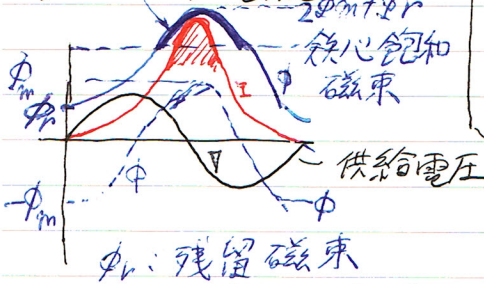 2φm+φr
鉄心飽和
磁束
φm
φr
I
φ
V
供給電圧
φ
-φm
φ
φr:残留磁束